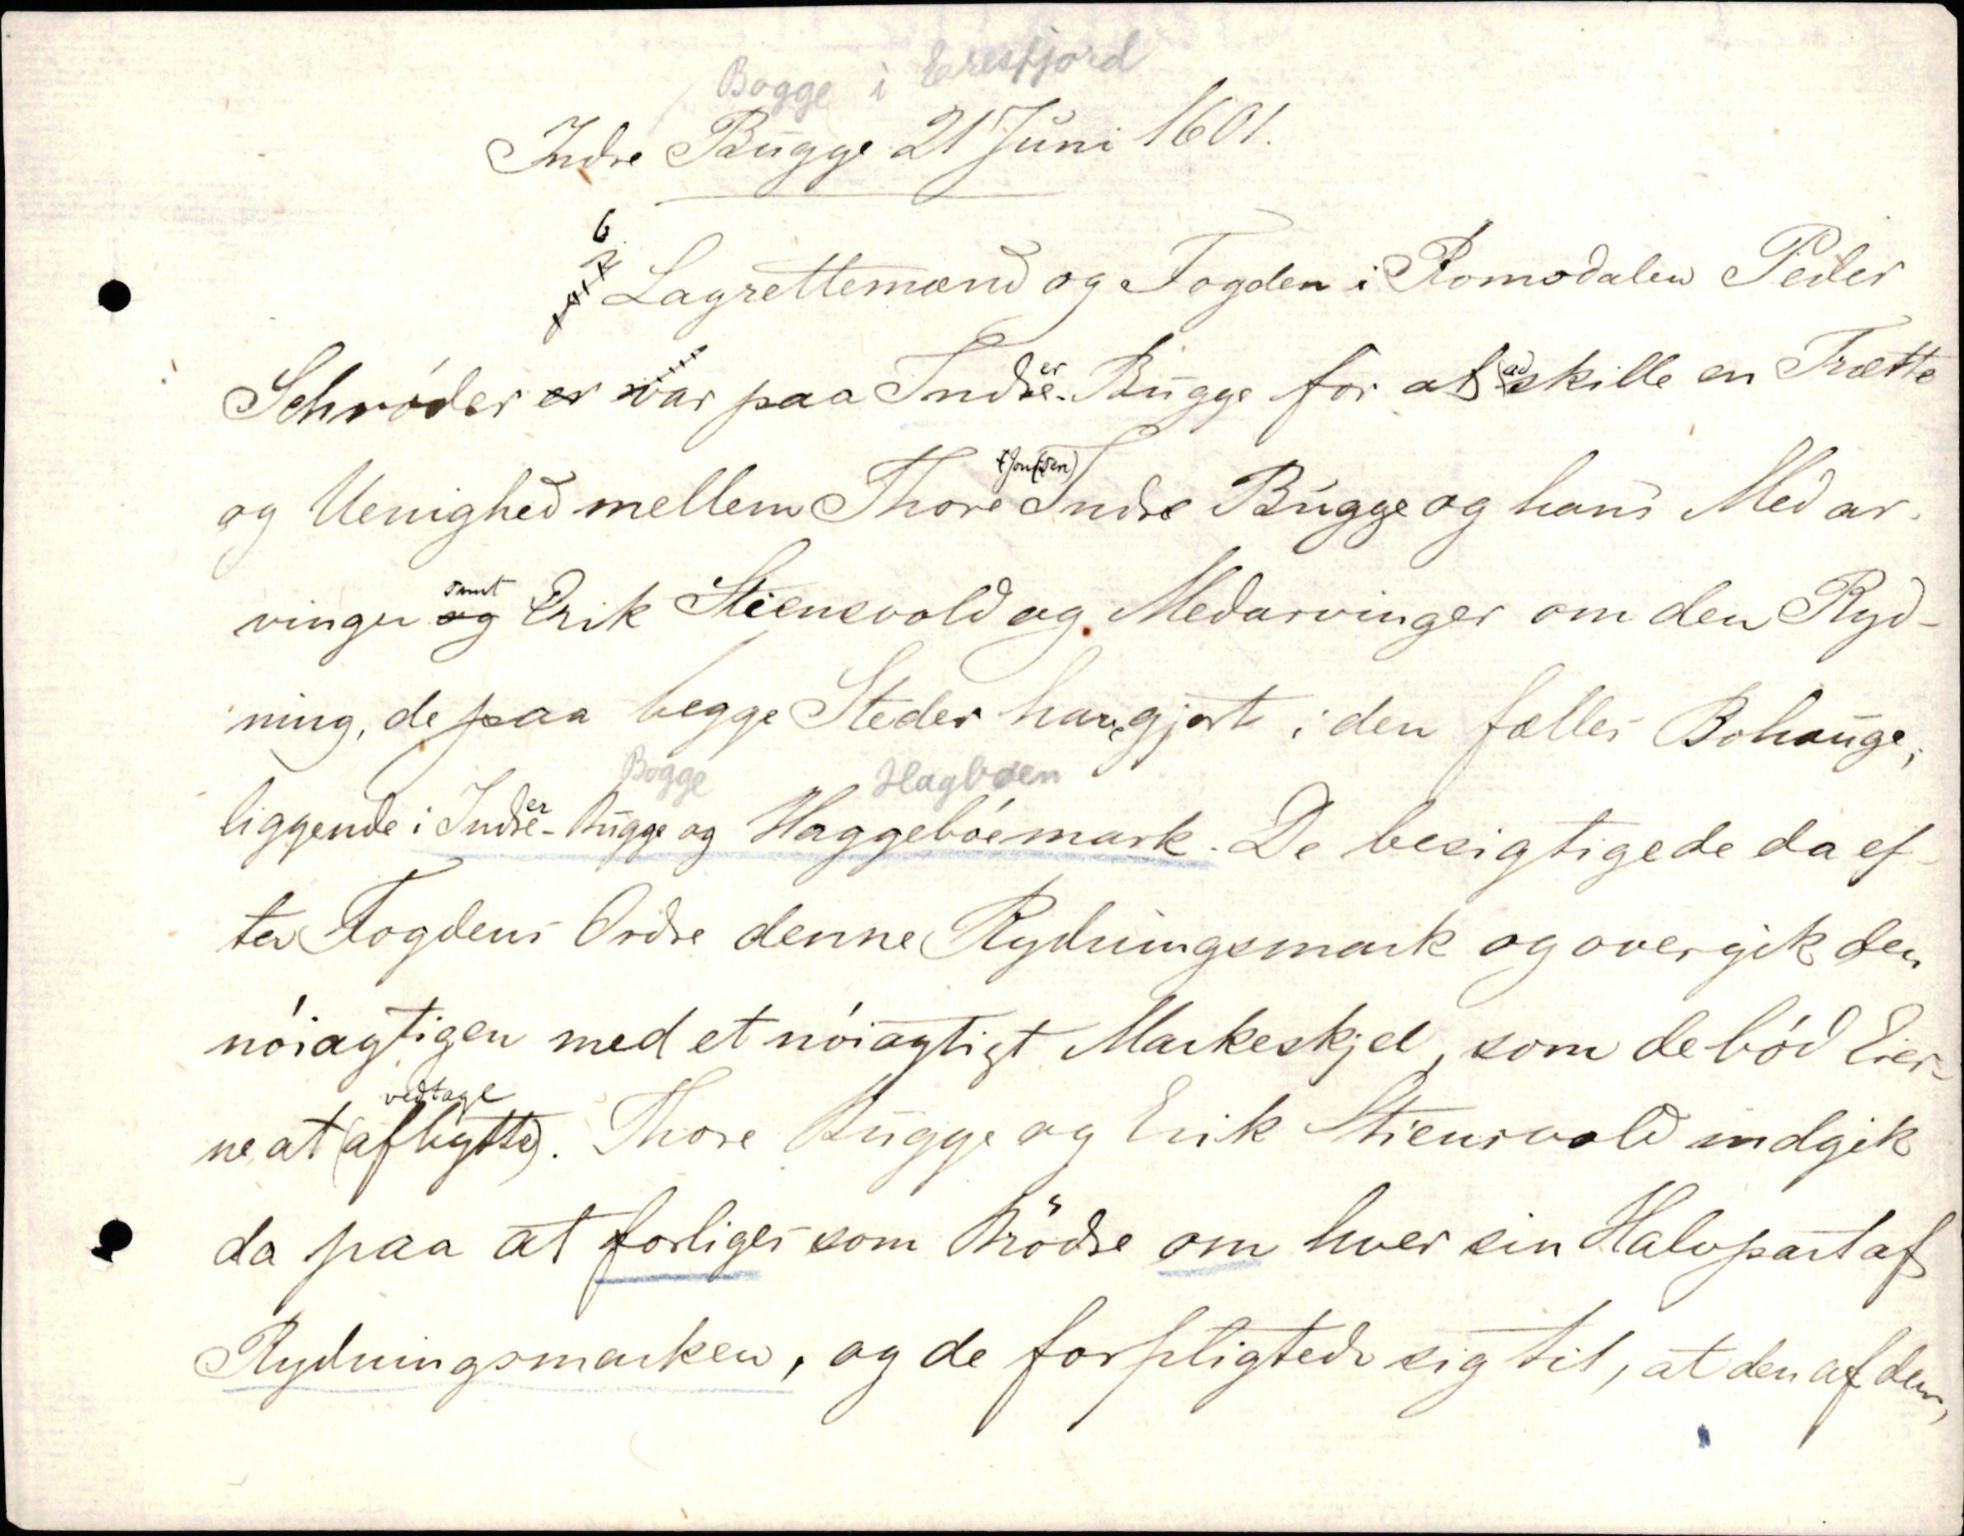 Bogge i Eresfjord
Indre Bugge 21 Juni 1601.
6
Lagrettemænd og Fogden i Romsdalen Peder
Schrøder er var paa Indre-Bugge for at adskille en Trætte
(Jonsen)
og Uenighed mellem Thore Indre Bugge og hans Medar-
samt
vinger og Erik Stiensvold og Medarvinger om den Ryd-
ning, de paa begge Steder have gjort i den fælles Bohauge,
Bogge Hagbøen
liggende i Indre-Bugge og Haggebóemark. De besigtigede da ef-
ter Fogdens Ordre denne Rydningsmark og overgik den
nóiagtigen med et nóiagtigt Markeskjel, som de bód Eier-
vedtage
ne at (afhytte). Thore Bugge og Erik Stiensvold indgik
da paa at forliges som Brödre om hver sin Halvpart af
Rydningsmarken, og de forpligtede sig til, at den af dem,